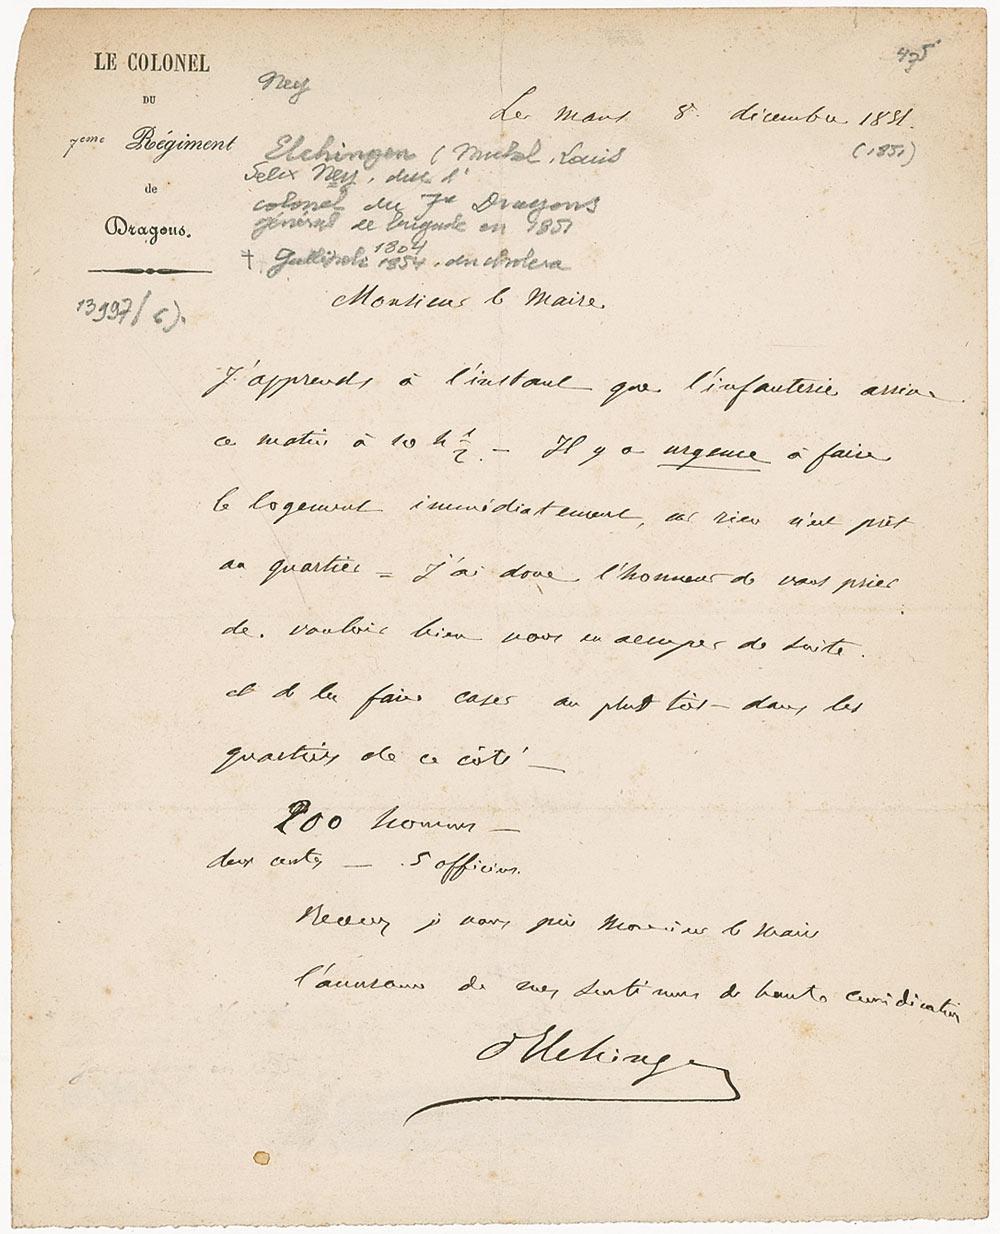 LE COLONEL
DU
7eme Régiment
de
Dragons.
475
Ney
Le mans 8 décembre 1851.
(1851)
Elchingen (Michel, Louis
Felix Ney, duc d'
colonel du 7e Dragons
général de brigade en 1851
1804
† Gallipoli 1854, du choléra
13997/6).
Monsieur le Maire
J'apprends à l'instant que l'infanterie arrive
ce matin à 10 h ½. — Il y a urgence à faire
le logement immédiatement, car rien n'est prêt
au quartier = J'ai donc l'honneur de vous prier
de vouloir bien vous en occuper de suite.
et de les faire caser au plus tôt — dans les
quartiers de ce côté —
200 hommes —
deux cents — 5 officiers.
Recevez je vous prie Monsieur le Maire
l'assurance de mes sentimens de haute considération
d'Elchingen